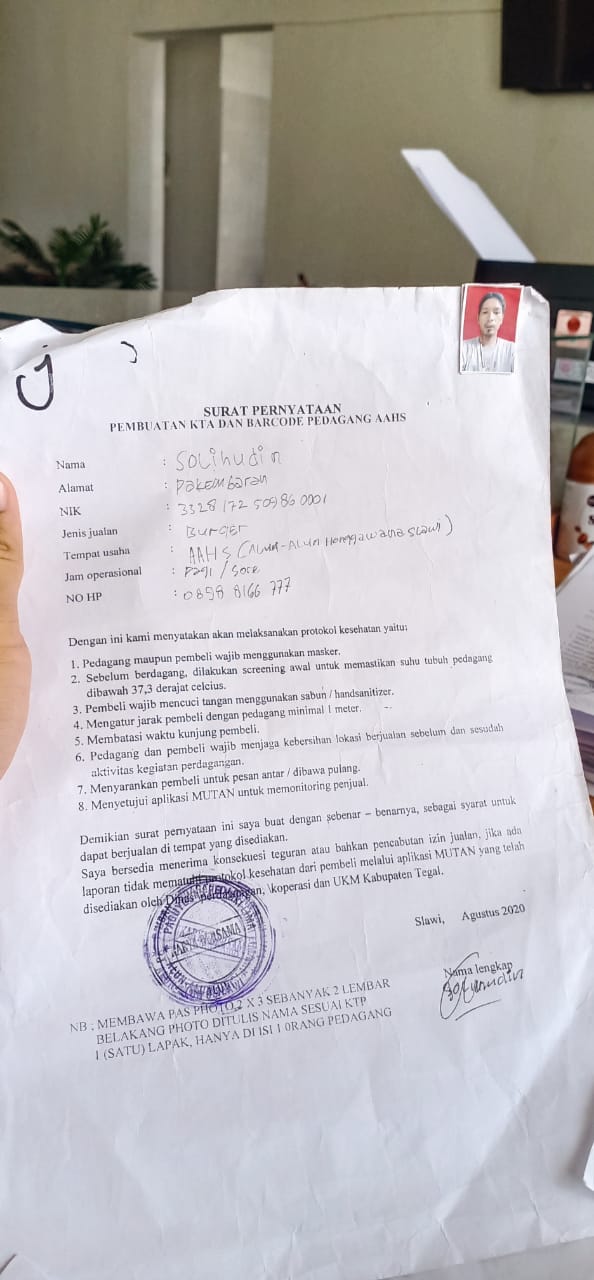 SURAT PERNYATAAN
PEMBUATAN KTA DAN BARCODE PEDAGANG AAHS
Nama : Solihudin
Alamat : Pakembaran
NIK : 3328 172 50986 0001
Jenis jualan : Burger
Tempat usaha : AAHS (Alun-Alun Hanggawana Slawi)
Jam operasional : Pagi / Sore
NO HP : 0898 8166 777
Dengan ini kami menyatakan akan melaksanakan protokol kesehatan yaitu:
1. Pedagang maupun pembeli wajib menggunakan masker.
2. Sebelum berdagang, dilakukan screening awal untuk memastikan suhu tubuh pedagang
dibawah 37,3 derajat celcius.
3. Pembeli wajib mencuci tangan menggunakan sabun / handsanitizer.
4. Mengatur jarak pembeli dengan pedagang minimal 1 meter.
5. Membatasi waktu kunjung pembeli.
6. Pedagang dan pembeli wajib menjaga kebersihan lokasi berjualan sebelum dan sesudah
aktivitas kegiatan perdagangan.
7. Menyarankan pembeli untuk pesan antar / dibawa pulang.
8. Menyetujui aplikasi MUTAN untuk memonitoring penjual.
Demikian surat pernyataan ini saya buat dengan sebenar – benarnya, sebagai syarat untuk
dapat berjualan di tempat yang disediakan.
Saya bersedia menerima konsekuesi teguran atau bahkan pencabutan izin jualan, jika ada
laporan tidak mematuhi protokol kesehatan dari pembeli melalui aplikasi MUTAN yang telah
disediakan oleh Dinas perdagangan, \koperasi dan UKM Kabupaten Tegal.
Slawi, Agustus 2020
Nama lengkap
Solihudin
NB : MEMBAWA PAS PHOTO 2 X 3 SEBANYAK 2 LEMBAR
BELAKANG PHOTO DITULIS NAMA SESUAI KTP
1 (SATU) LAPAK, HANYA DI ISI 1 0RANG PEDAGANG